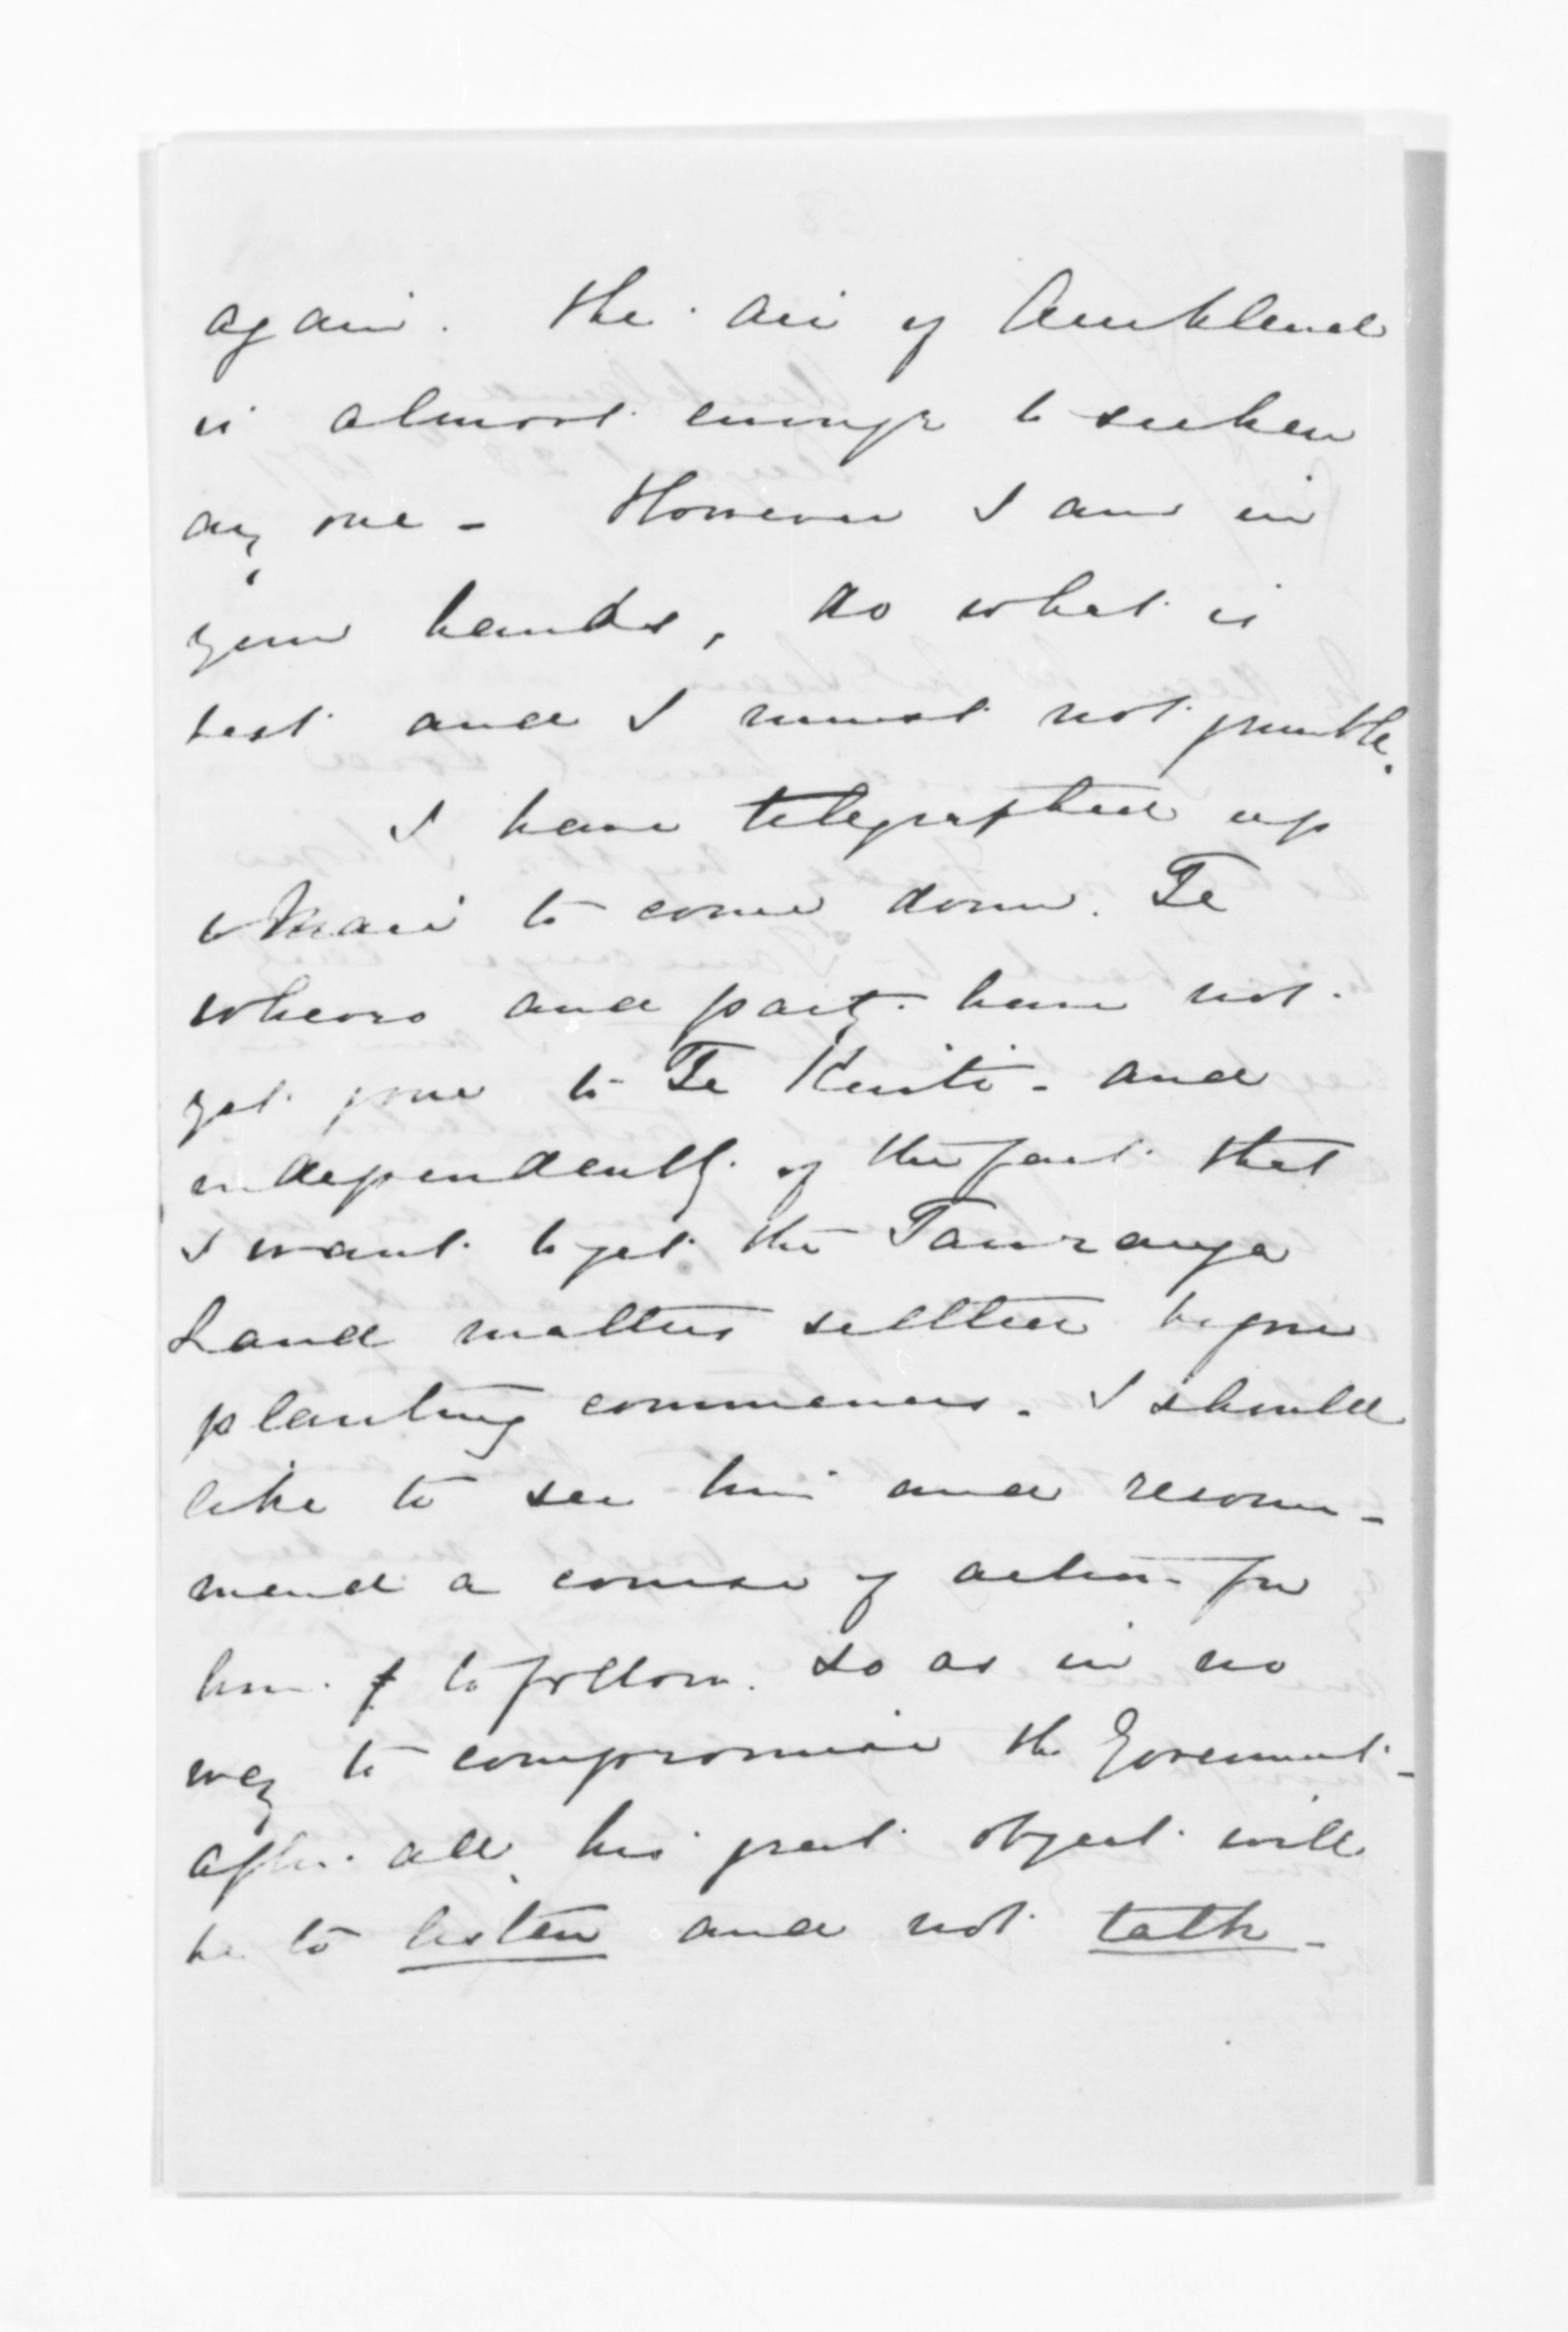 again. The air of Auckland
is almost enough to sicken
any one - However I am in
your hands, do what is
best and I must not grumble.
I have telegraphed up
to Mair to come down. Te
Wheoro and party have not
yet gone to Te Kuiti - and
independently of the fact that
I want to get the Tauranga
Land matters settled before
planting commences. I should
like to see him and recom-
mend a course of action for
him to follow. so as in no
way to compromise the Government -
after all, his great object will
be to listen and not talk -